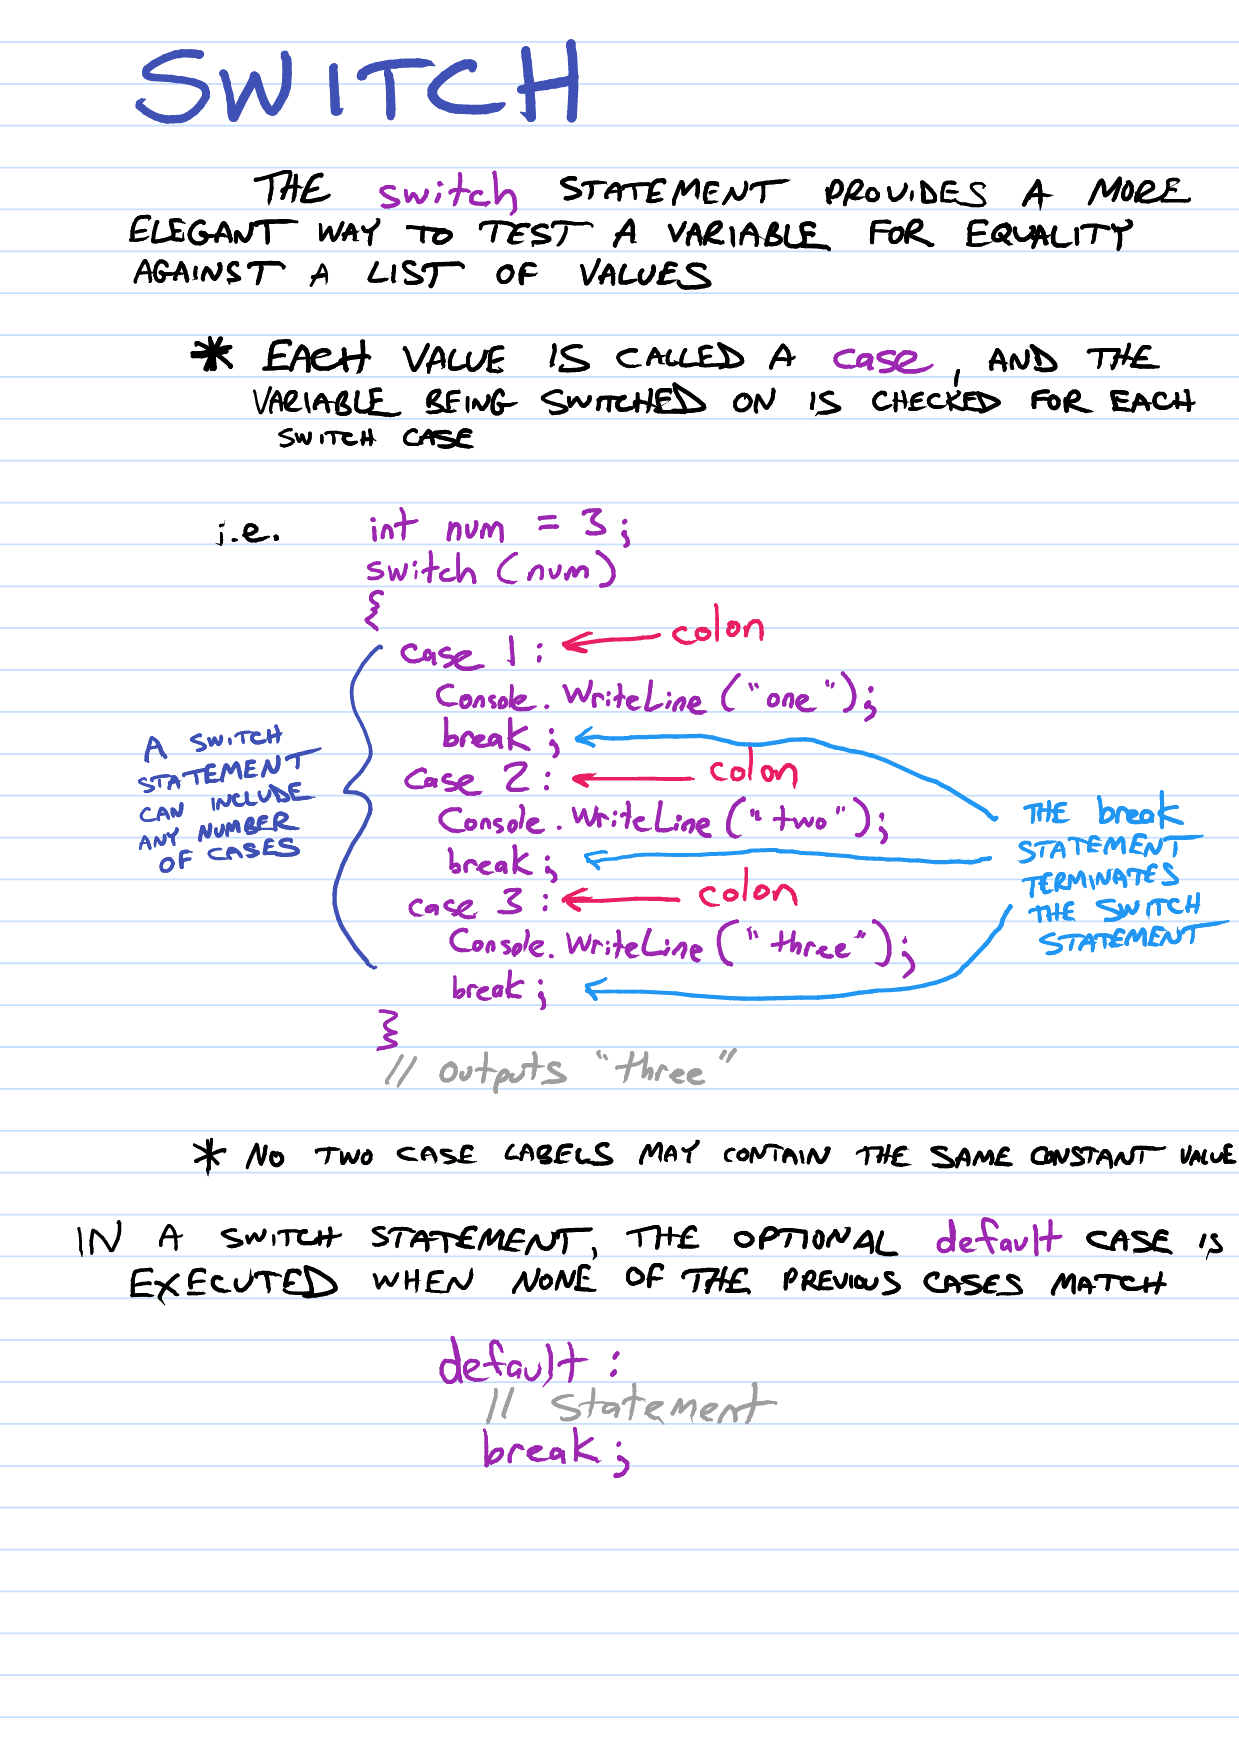 SWITCH
THE switch STATEMENT PROVIDES A MORE
ELEGANT WAY TO TEST A VARIABLE FOR EQUALITY
AGAINST A LIST OF VALUES
* EACH VALUE IS CALLED A case, AND THE
VARIABLE BEING SWITCHED ON IS CHECKED FOR EACH
SWITCH CASE
i.e. int num = 3;
switch (num)
{
case 1: ← colon
Console.WriteLine("one");
break;
case 2: ← colon
Console.WriteLine("two");
break;
case 3: ← colon
Console.WriteLine("three");
break;
}
// outputs "three"
A SWITCH
STATEMENT
CAN INCLUDE
ANY NUMBER
OF CASES
THE break
STATEMENT
TERMINATES
THE SWITCH
STATEMENT
* NO TWO CASE LABELS MAY CONTAIN THE SAME CONSTANT VALUE
IN A SWITCH STATEMENT, THE OPTIONAL default CASE IS
EXECUTED WHEN NONE OF THE PREVIOUS CASES MATCH
default:
// statement
break;